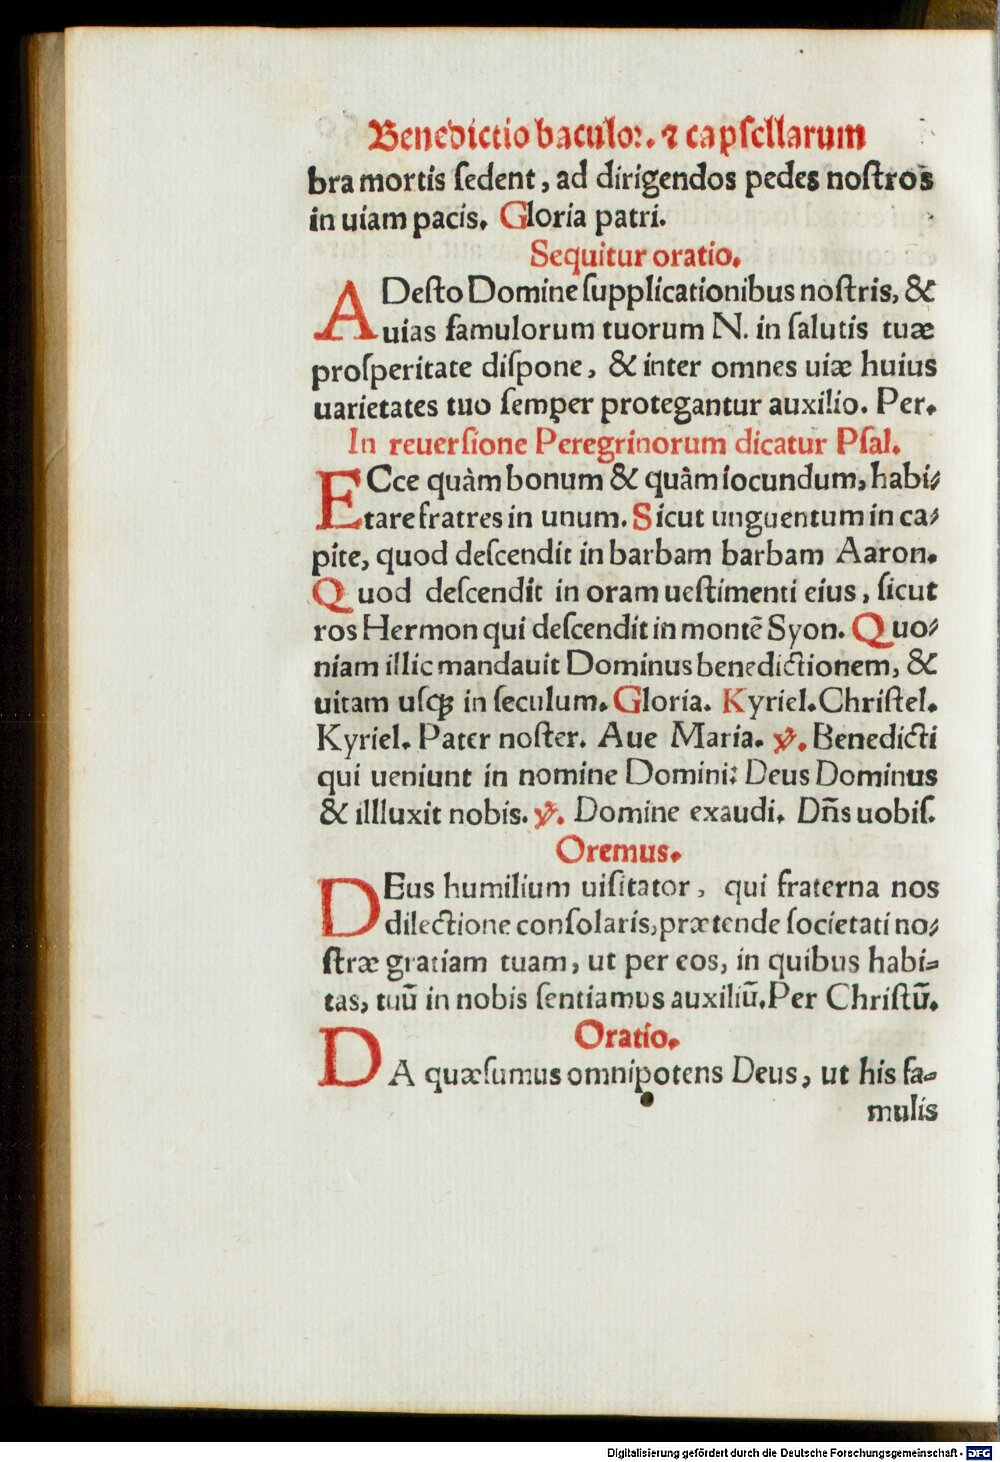 Benedictio baculoꝝ. ⁊ capsellarum
bra mortis ſedent, ad dirigendos pedes noſtros
in uiam pacis. Gloria patri.
Sequitur oratio.
ADeſto Domine ſupplicationibus noſtris, &
uias famulorum tuorum N. in ſalutis tuæ
proſperitate diſpone, & inter omnes uiæ huius
uarietates tuo ſemper protegantur auxilio. Per.
In reuerſione Peregrinorum dicatur Pſal.
ECce quàm bonum & quàm iocundum, habi⸗
tare fratres in unum. Sicut unguentum in ca⸗
pite, quod deſcendit in barbam barbam Aaron.
Quod deſcendit in oram ueſtimenti eius, ſicut
ros Hermon qui deſcendit in montē Syon. Quo⸗
niam illic mandauit Dominus benedictionem, &
uitam uſqꝫ in ſeculum. Gloria. Kyriel. Chriſtel.
Kyriel. Pater noſter. Aue Maria. ℣. Benedicti
qui ueniunt in nomine Domini: Deus Dominus
& illluxit nobis. ℣. Domine exaudi. Dn̄s uobiſ.
Oremus.
DEus humilium uiſitator, qui fraterna nos
dilectione conſolaris, prætende ſocietati no⸗
ſtræ gratiam tuam, ut per eos, in quibus habi⸗
tas, tuū in nobis ſentiamus auxiliū. Per Chriſtū.
Oratio.
DA quæſumus omnipotens Deus, ut his fa⸗
mulis
Digitalisierung gefördert durch die Deutsche Forschungsgemeinschaft - DFG